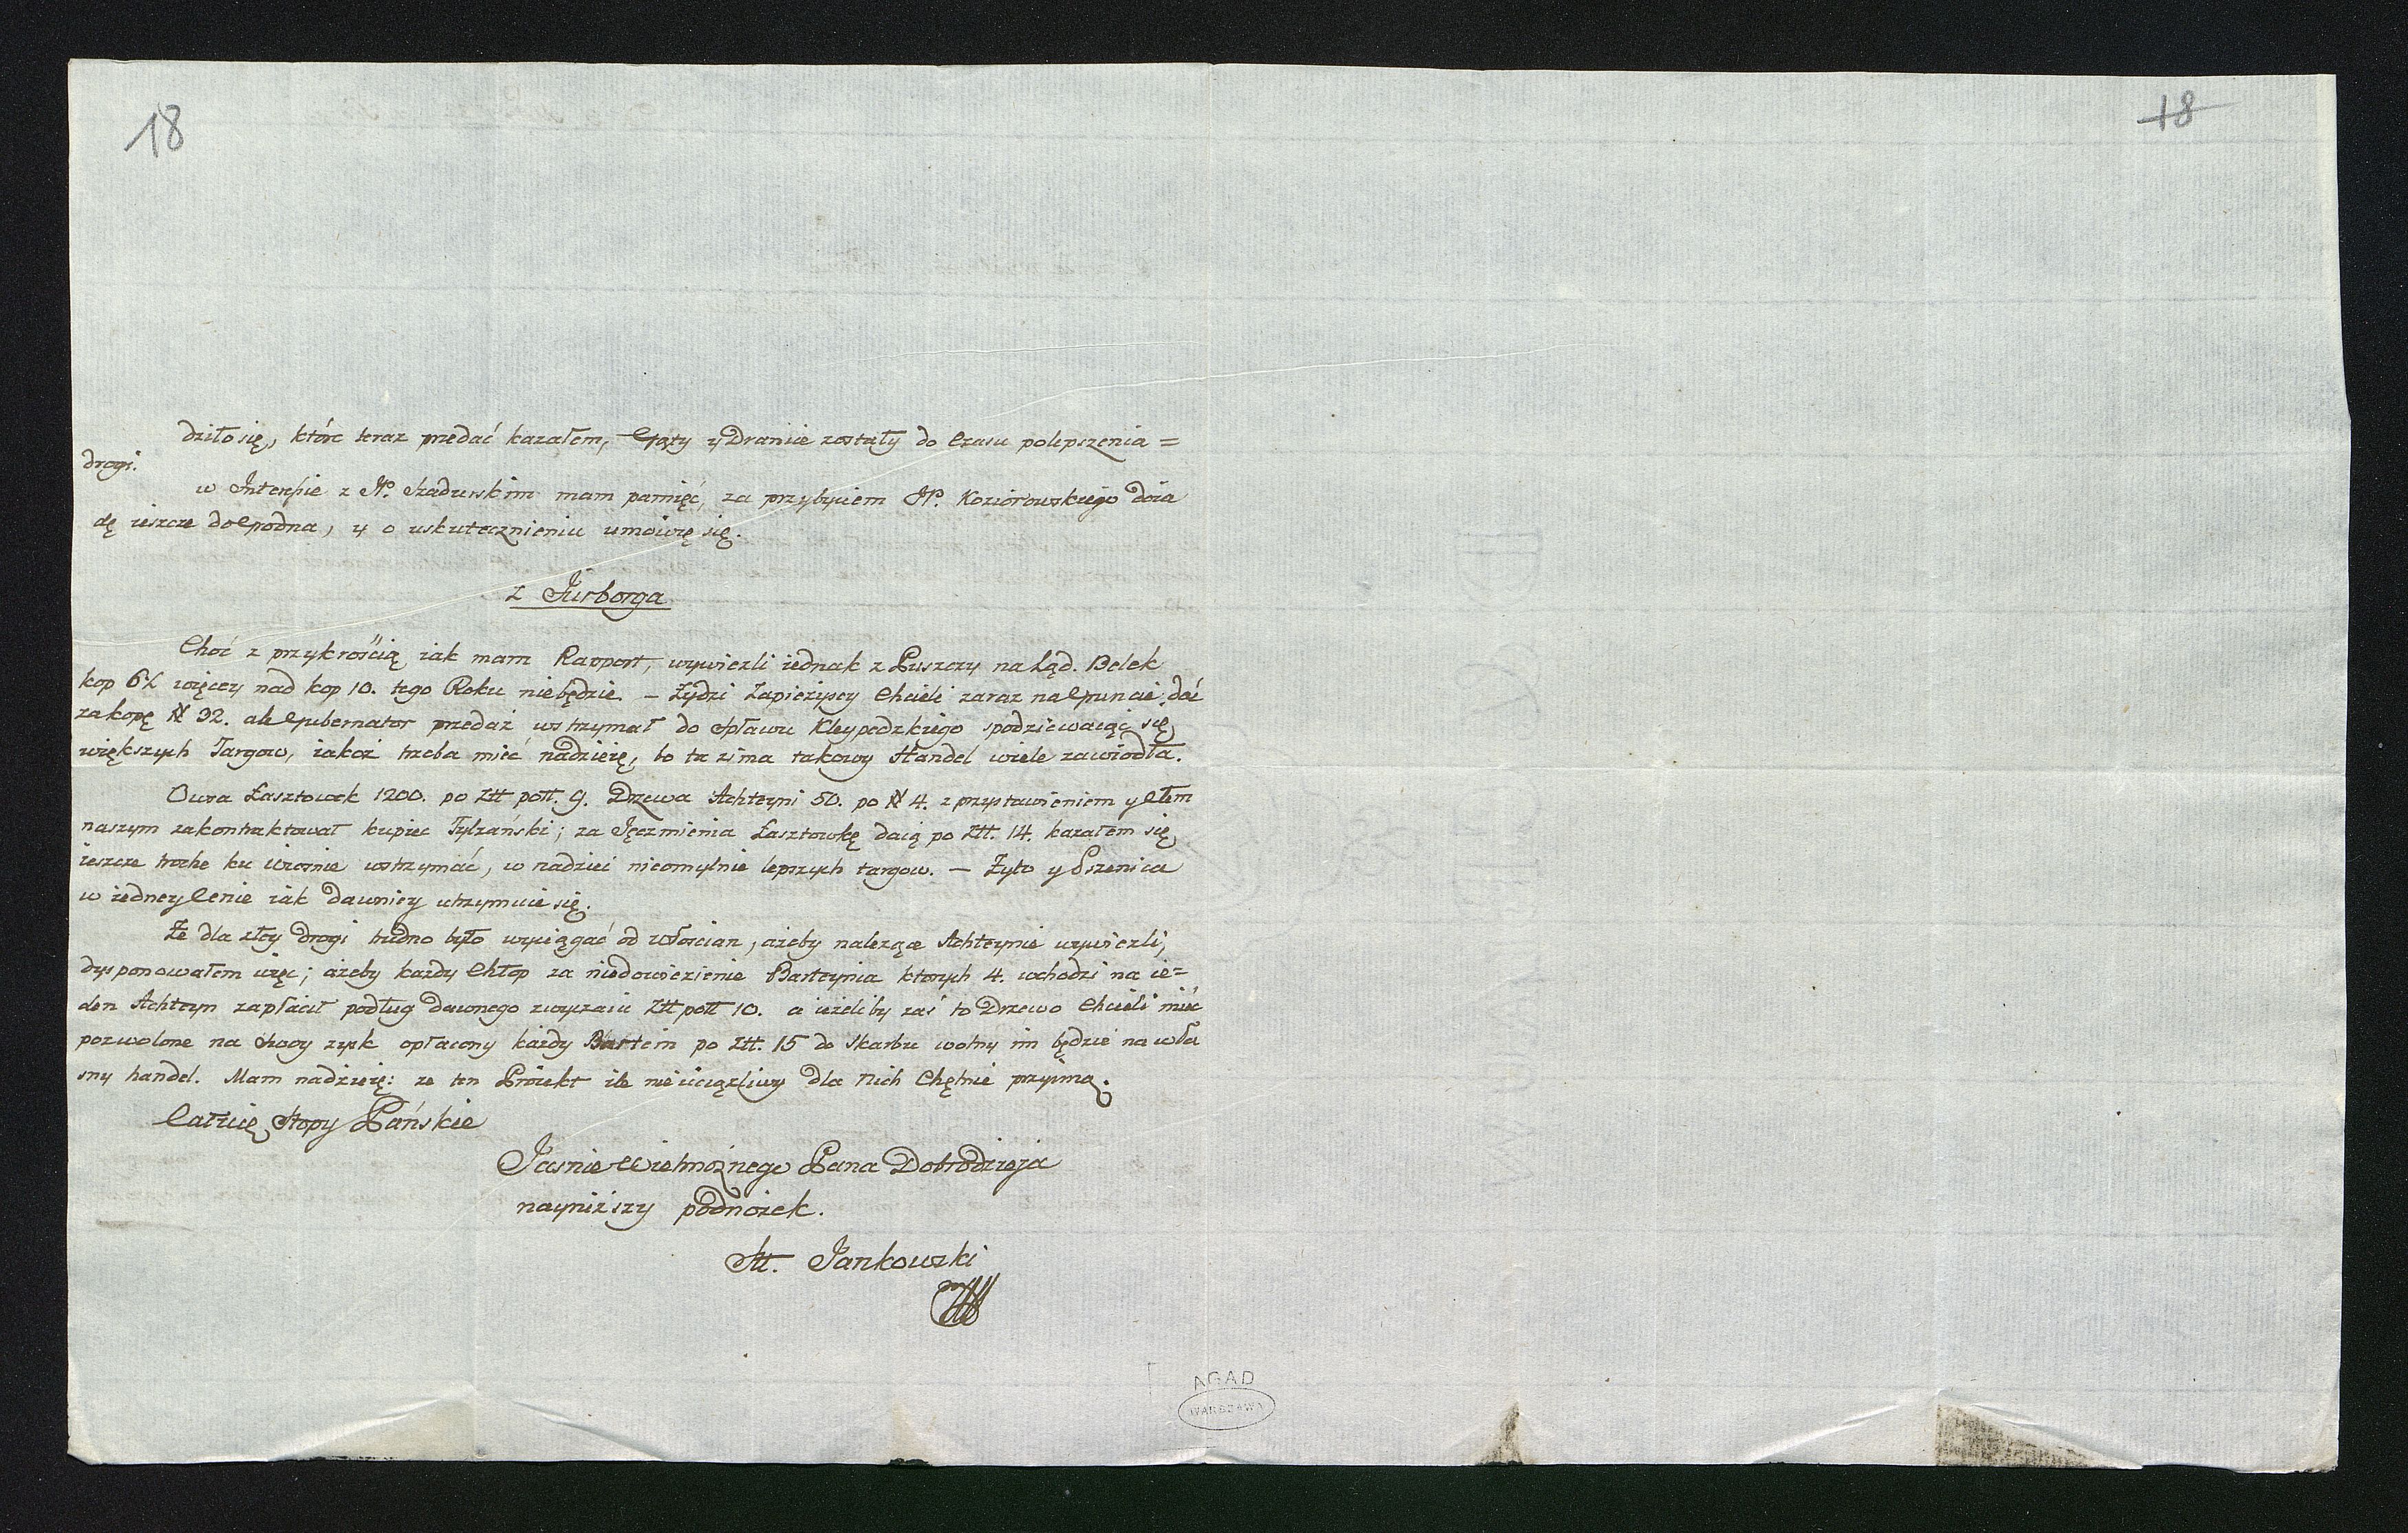 18
18
dziło się, które teraz przedać kazałem, Gąty y Dranice zostały do Czasu polepszenia =
drogi.
w Interesie z JP. Szadurskim mam pamięć, za przybyciem JP. Koziorowskiego doia
dę ieszcze do Grodna, y o uskutecznieniu umowię się.
z Jurborga
Choć z przykrością iak mam Rapport, wywiezli iednak z Puszczy na Ląd. Belek
kop 6½ więcey nad kop 10. tego Roku niebędzie. – Żydzi Zapieżyscy Chcieli zaraz na Gruncie dać
za kopę # 32. ale Gubernator przedaż wstrzymał do Spławu Kleypedzkiego spodziewaiąc się
większych Targow, iakoż trzeba mieć nadzieię, bo ta zima takowy Handel wiele zawiodła.
Owsa Łasztowek 1200. po Ztt polt. 9. Drzewa Achteyni 50. po # 4. z przystawieniem y Cłem
naszym zakontraktował kupiec Tylzański; za Jęczmienia Łasztowkę daią po Ztt. 14. kazałem się
ieszcze trochę ku Wiosnie wstrzymać, w nadziei nieomylnie lepszych targow. – Żyto y Pszenica
w iedney Cenie iak dawniey utrzymuie się.
Że dla złey drogi trudno było wyciągać od włoscian, ażeby należące Achteynie wywiezli,
dysponowałem więc; ażeby każdy Chłop za niedowiezienie Barteynia ktorych 4. wchodzi na ie=
den Achteyn zapłacił podług dawnego zwyczaiu Ztt polt 10. a ieżeliby zaś to Drzewo Chcieli mieć
pozwolone na swoy zysk opłacony każdy Bartein po Ztt. 15 do Skarbu wolny im będzie na wła
sny handel. Mam nadzieię: że ten Proiekt ile nieuciążliwy dla Nich Chętnie przyimą.
Całuię Stopy Pańskie
Jasnie Wielmożnego Pana Dobrodzieja
nayniższy podnożek.
M. Jankowski
AGAD
WARSZAWA